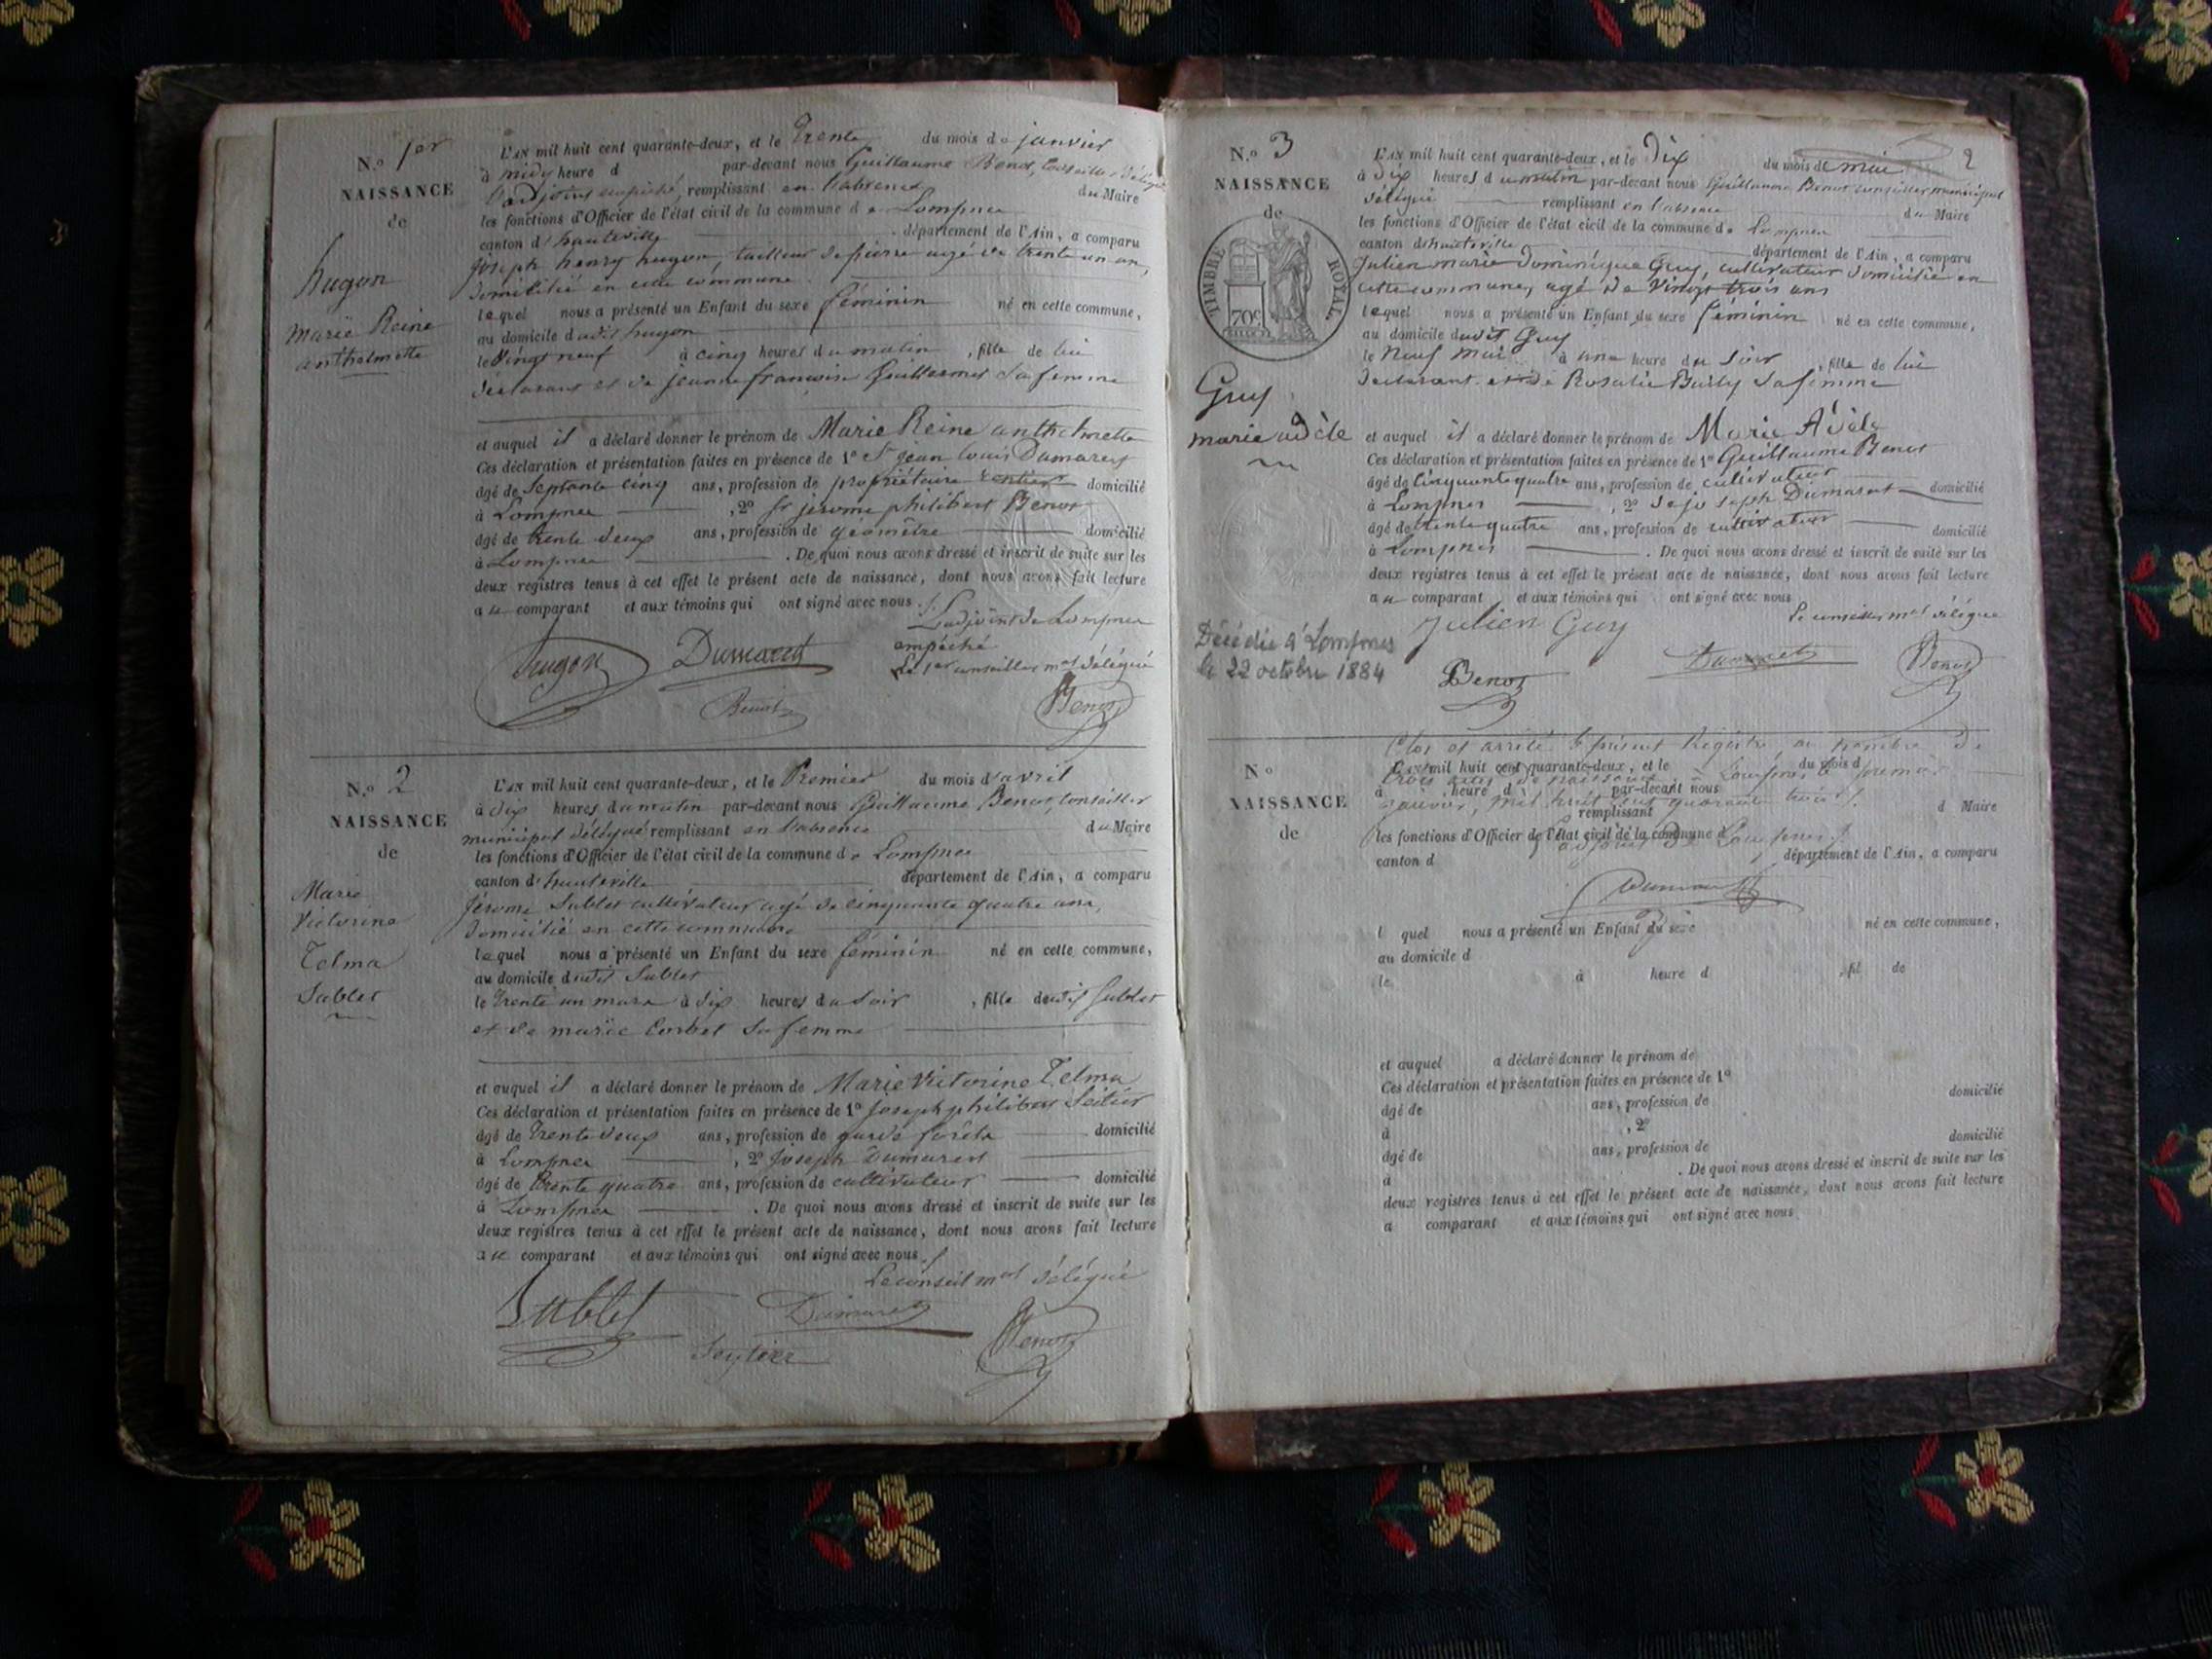 N.o 1er
NAISSANCE
de
hugon
marie Reine
anthelmette
L'AN mil huit cent quarante-deux, et le Trente du mois de janvier
à midy heure d par-devant nous Guillaume Benot, Conseiller délégué
l'adjoint empêché, remplissant en l'absence du Maire
les fonctions d'Officier de l'état civil de la commune de Lompnes
canton d'hauteville département de l'Ain, a comparu
joseph henry hugon, tailleur de pierre agé de trente un an,
domicilié en cette commune
lequel nous a présenté un Enfant du sexe féminin né en cette commune,
au domicile dudit hugon
le Vingt neuf à cinq heures du matin, fille de lui
déclarant et de jeanne françoise Guillermet sa femme
et auquel il a déclaré donner le prénom de Marie Reine anthelmette
Ces déclaration et présentation faites en présence de 1o Sr jean Louis Dumarest
âgé de Septante cinq ans, profession de propriétaire rentier domicilié
à Lompnes, 2o Sr jerome philibert Benot
âgé de trente deux ans, profession de géomètre domicilié
à Lompnes. De quoi nous avons dressé et inscrit de suite sur les
deux registres tenus à cet effet le présent acte de naissance, dont nous avons fait lecture
au comparant et aux témoins qui ont signé avec nous ./.
L'adjoint de Lompnes
empêché
Le 1er conseiller mal délégué
hugon Dumarest
Benot Benot
N.o 2
NAISSANCE
de
Marie
Victorine
Telma
Sublet
L'AN mil huit cent quarante-deux, et le Premier du mois d'avril
à dix heures du matin par-devant nous Guillaume Benot, Conseiller
municipal délégué remplissant en l'absence du Maire
les fonctions d'Officier de l'état civil de la commune de Lompnes
canton d'hauteville département de l'Ain, a comparu
jérome Sublet cultivateur agé de cinquante quatre ans,
domicilié en cette commune
lequel nous a présenté un Enfant du sexe féminin né en cette commune,
au domicile dudit Sublet
le trente un mars à dix heures du soir, fille dudit Sublet
et de marie Corbet sa femme
et auquel il a déclaré donner le prénom de Marie Victorine Telma
Ces déclaration et présentation faites en présence de 1o joseph philibert Seitier
âgé de trente deux ans, profession de garde forêts domicilié
à Lompnes, 2o joseph Dumarest
âgé de trente quatre ans, profession de cultivateur domicilié
à Lompnes. De quoi nous avons dressé et inscrit de suite sur les
deux registres tenus à cet effet le présent acte de naissance, dont nous avons fait lecture
au comparant et aux témoins qui ont signé avec nous ./.
Le conseil mal délégué
Sublet Dumarest
Seytier Benot
2
N.o 3
NAISSANCE
de
TIMBRE ROYAL
70c
Guy
marie adèle
Décédée à Lompnes
le 22 octobre 1884
L'AN mil huit cent quarante-deux, et le Dix du mois de mai
à dix heures du matin par-devant nous Guillaume Benot conseiller municipal
délégué remplissant en l'absence du Maire
les fonctions d'Officier de l'état civil de la commune de Lompnes
canton d'hauteville département de l'Ain, a comparu
julien marie dominique Guy, cultivateur domicilié en
cette commune, agé de vingt trois ans
lequel nous a présenté un Enfant du sexe féminin né en cette commune,
au domicile dudit Guy
le neuf mai à une heure du soir, fille de lui
déclarant et de Rosalie Bailly sa femme
et auquel il a déclaré donner le prénom de Marie Adèle
Ces déclaration et présentation faites en présence de 1o Guillaume Benot
âgé de cinquante quatre ans, profession de cultivateur domicilié
à Lompnes, 2o joseph Dumarest
âgé de trente quatre ans, profession de cultivateur domicilié
à Lompnes. De quoi nous avons dressé et inscrit de suite sur les
deux registres tenus à cet effet le présent acte de naissance, dont nous avons fait lecture
au comparant et aux témoins qui ont signé avec nous
Le conseiller mal délégué
Julien Guy
Benot Dumarest Benot
N.o
NAISSANCE
de
Clos et arrêté le présent Registre au nombre de
L'AN mil huit cent quarante-deux, et le du mois d
trois actes de naissance à Lompnes le premier
à heure d par-devant nous
janvier, mil huit cent quarante trois ./.
remplissant d Maire
les fonctions d'Officier de l'état civil de la commune d
adjoint de Lompnes
canton d département de l'Ain, a comparu
Dumarest
l quel nous a présenté un Enfant du sexe né en cette commune,
au domicile d
le à heure d, fil de
et auquel a déclaré donner le prénom de
Ces déclaration et présentation faites en présence de 1o
âgé de ans, profession de domicilié
à, 2o
âgé de ans, profession de domicilié
à. De quoi nous avons dressé et inscrit de suite sur les
deux registres tenus à cet effet le présent acte de naissance, dont nous avons fait lecture
a comparant et aux témoins qui ont signé avec nous